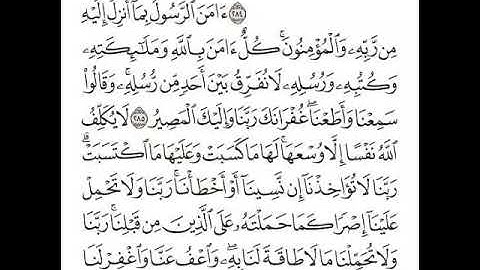 ﴿٢٨٤﴾ ءَامَنَ الرَّسُولُ بِمَا أُنزِلَ إِلَيْهِ
مِن رَّبِّهِۦ وَالْمُؤْمِنُونَ ۚ كُلٌّ ءَامَنَ بِاللَّهِ وَمَلَـٰٓئِكَتِهِۦ
وَكُتُبِهِۦ وَرُسُلِهِۦ لَا نُفَرِّقُ بَيْنَ أَحَدٍ مِّن رُّسُلِهِۦ ۚ وَقَالُوا۟
سَمِعْنَا وَأَطَعْنَا ۖ غُفْرَانَكَ رَبَّنَا وَإِلَيْكَ الْمَصِيرُ ﴿٢٨٥﴾ لَا يُكَلِّفُ
اللَّهُ نَفْسًا إِلَّا وُسْعَهَا ۚ لَهَا مَا كَسَبَتْ وَعَلَيْهَا مَا اكْتَسَبَتْ ۗ
رَبَّنَا لَا تُؤَاخِذْنَا إِن نَّسِينَا أَوْ أَخْطَأْنَا ۚ رَبَّنَا وَلَا تَحْمِلْ
عَلَيْنَا إِصْرًا كَمَا حَمَلْتَهُۥ عَلَى الَّذِينَ مِن قَبْلِنَا ۚ رَبَّنَا
وَلَا تُحَمِّلْنَا مَا لَا طَاقَةَ لَنَا بِهِۦ ۖ وَاعْفُ عَنَّا وَاغْفِرْ لَنَا